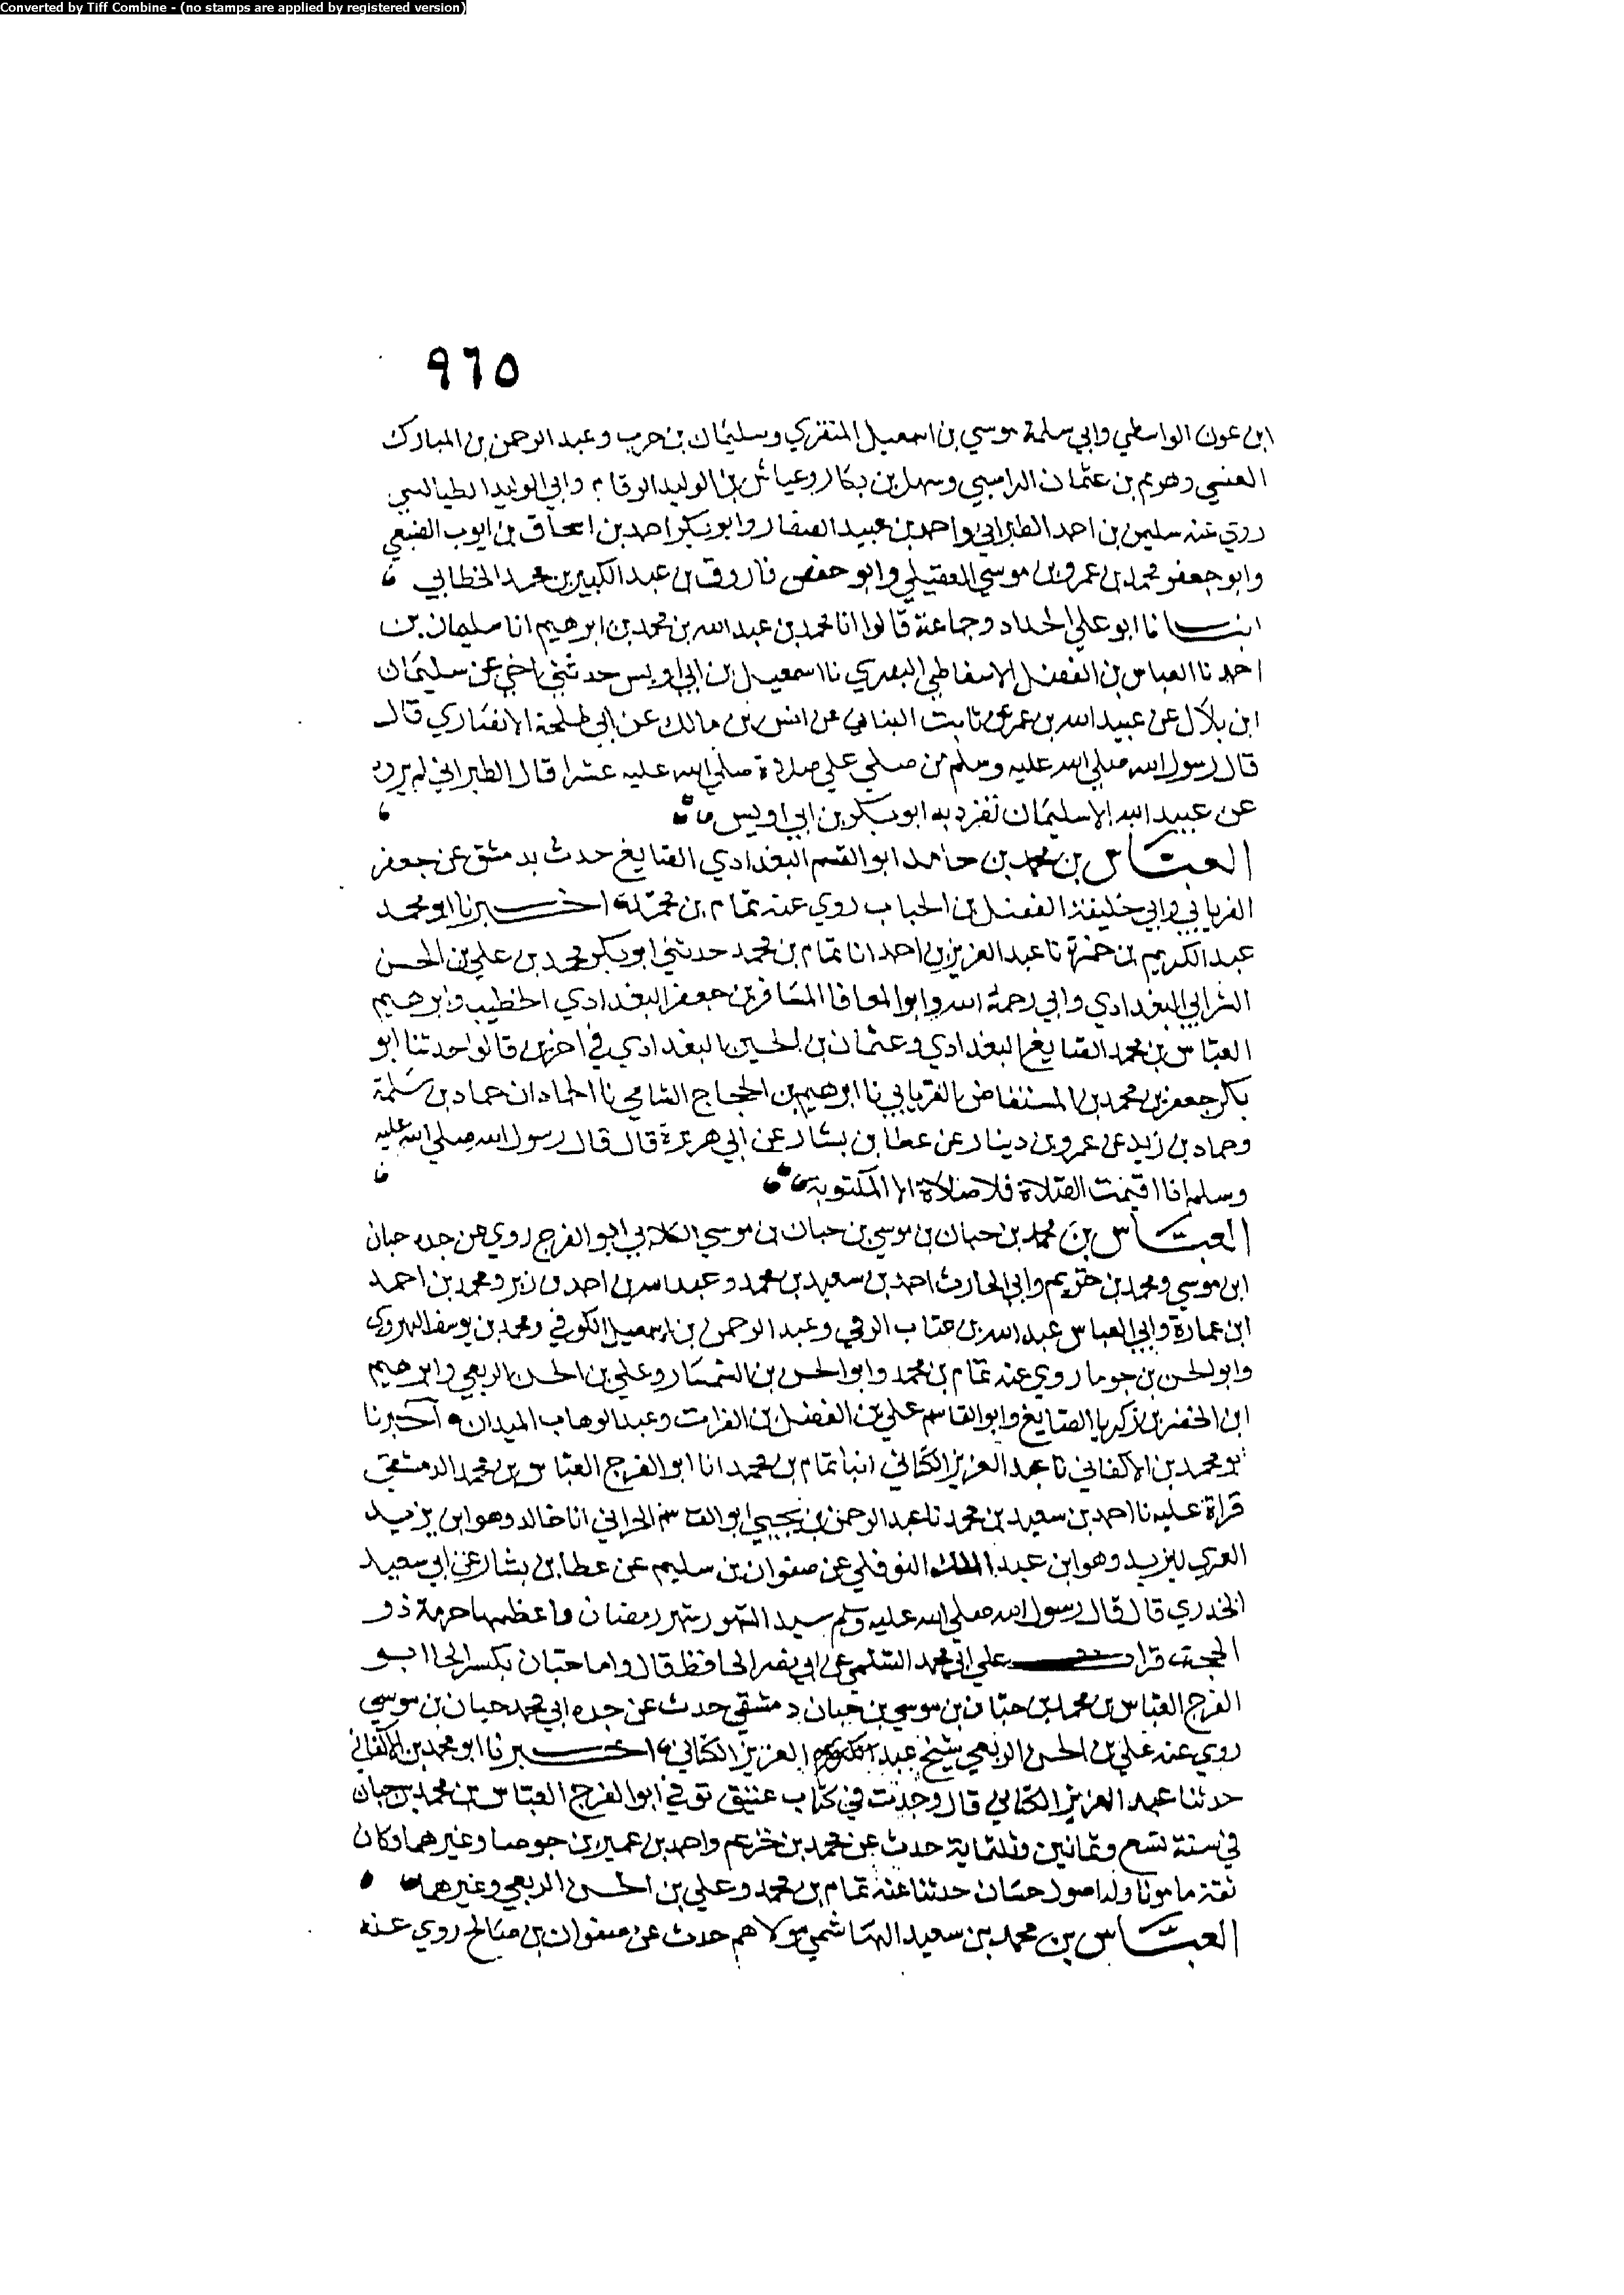 Converted by Tiff Combine - (no stamps are applied by registered version)
٩٦٥
ابن عون الواسطي وابي سلمة موسي بن اسمعيل المنقري وسليمان بن حرب وعبد الرحمن بن المبارك
العنسي وهريم بن عثمان الراسبي وسهل بن بكار وعياش بن الوليد الرقام وابي الوليد الطيالسي
روي عنه سليمن بن احمد الطبراني واحمد بن عبيد الصفار وابو بكر احمد بن اسحاق بن ايوب الضبعي
وابو جعفر محمد بن عمرو بن موسي العقيلي وابو حفص فاروق بن عبد الكبير بن محمد الخطابي
انبـــانا ابو علي الحداد وجماعة قالوا انا محمد بن عبد الله بن محمد بن ابرهيم انا سليمان بن
احمد نا العباس بن الفضل الاسفاطي البصري نا اسمعيل بن ابي اويس حدثني اخي عن سليمان
ابن بلال عن عبيد الله بن عمر عن ثابت البناني عن انس بن مالك عن ابي طلحة الانصاري قال
قال رسول الله صلي الله عليه وسلم من صلي علي صلاة صلي الله عليه عشرا قال الطبراني لم يرو
عن عبيد الله الا سليمان تفرد به ابو بكر بن ابي اويس
العبـــاس بن محمد بن حامد ابو القسم البغدادي الصايغ حدث بدمشق عن جعفر
الفريابي وابي خليفة الفضل بن الحباب روي عنه تمام بن محمد اخـــبرنا ابو محمد
عبد الكريم بن حمزة نا عبد العزيز بن احمد انا تمام بن محمد حدثني ابو بكر محمد بن علي بن الحسن
الشرابي البغدادي وابي رحمة الله وابو المعافا المسافر بن جعفر البغدادي الخطيب وابرهيم
العباس بن محمد الصايغ البغدادي وعثمان بن الحسين البغدادي في اخرين قالوا حدثنا ابو
بكر جعفر بن محمد بن المستفاض الفريابي نا ابرهيم بن الحجاج الشامي نا الحمادان حماد بن سلمة
وحماد بن زيد عن عمرو بن دينار عن عطا بن يسار عن ابي هريرة قال قال رسول الله صلي الله عليه
وسلم اذا اقيمت الصلاة فلا صلاة الا المكتوبة
العبـــاس بن محمد بن حبان بن موسي بن حبان بن موسي الكلابي ابو الفرج روي عن جده حبان
ابن موسي ومحمد بن خريم وابي الحارث احمد بن سعيد بن محمد وعبد الله بن احمد بن زبر ومحمد بن احمد
ابن عمارة وابي العباس عبد الله بن عتاب الزفتي وعبد الرحمن بن اسمعيل الكوفي ومحمد بن يوسف الهروي
وابو الحسن بن جوصا روي عنه تمام بن محمد وابو الحسن بن السمسار وعلي بن الحسن الربعي وابرهيم
ابن الخضر بن زكريا الصايغ وابو القاسم علي بن الفضل بن الفرات وعبد الوهاب الميداني اخبرنا
ابو محمد بن الاكفاني نا عبد العزيز الكتاني انبا تمام بن محمد انا ابو الفرج العباس بن محمد الدمشقي
قراة عليه نا احمد بن سعيد بن محمد نا عبد الرحمن بن يحيي ابو القاسم الحراني انا خالد وهو ابن يزيد
العمري ليزيد وهو ابن عبد الملك النوفلي عن صفوان بن سليم عن عطا بن يشار عن ابي سعيد
الخدري قال قال رسول الله صلي الله عليه وسلم سيد الشهور شهر رمضان واعظمها حرمة ذو
الحجة قرات علي ابي محمد السلمي عن ابي نصر الحافظ قال واما حبان بكسر الحا ابو
الفرج العباس بن محمد بن حبان بن موسي بن حبان دمشقي حدث عن جده ابي محمد حبان بن موسي
روي عنه علي بن الحسن الربعي شيخ عبد العزيز الكتاني اخـــبرنا ابو محمد بن الاكفاني
حدثنا عبد العزيز الكتاني قال وجدت في كتاب عتيق توفي ابو الفرج العباس بن محمد بن حبان
في سنة تسع وثمانين وثلثماية حدث عن محمد بن خريم واحمد بن عمير بن جوصا وغيرهما وكان
ثقة مامونا وله اصول حسان حدثنا عنه تمام بن محمد وعلي بن الحسن الربعي وغيرهما
العبـــاس بن محمد بن سعيد الهاشمي مولاهم حدث عن صفوان بن صالح روي عنه